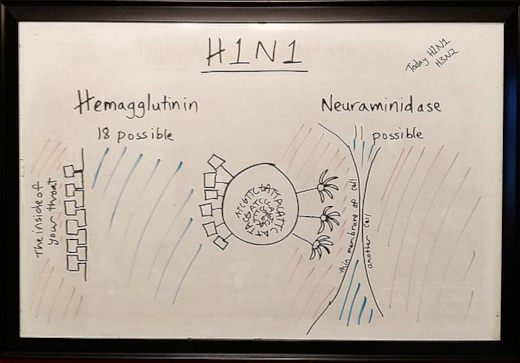 H1N1
Today H1N1
H3N2
Hemagglutinin
18 possible
Neuraminidase
11 possible
The inside of
your throat
thin membrane of cell
another cell